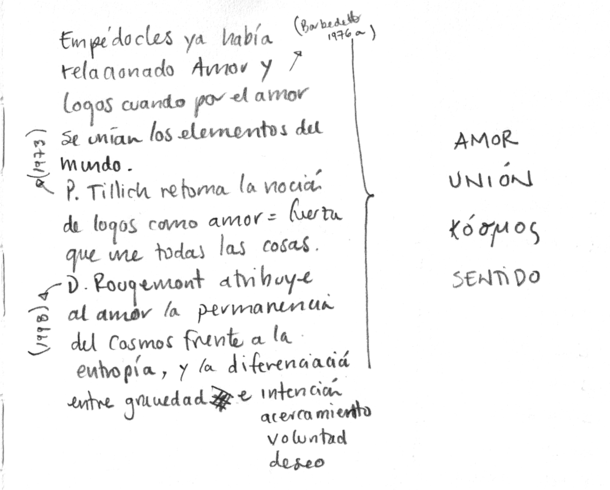 Empédocles ya había
relacionado Amor y
logos cuando por el amor
se unían los elementos del
mundo.
P. Tillich retoma la noción
de logos como amor = fuerza
que une todas las cosas.
D. Rougemont atribuye
al amor la permanencia
del cosmos frente a la
entropía, y la diferenciació
entre gravedad e intención
acercamiento
voluntad
deseo
(Barbedette
1976a)
(1973)
(1998)
AMOR
UNIÓN
κόσμος
SENTIDO